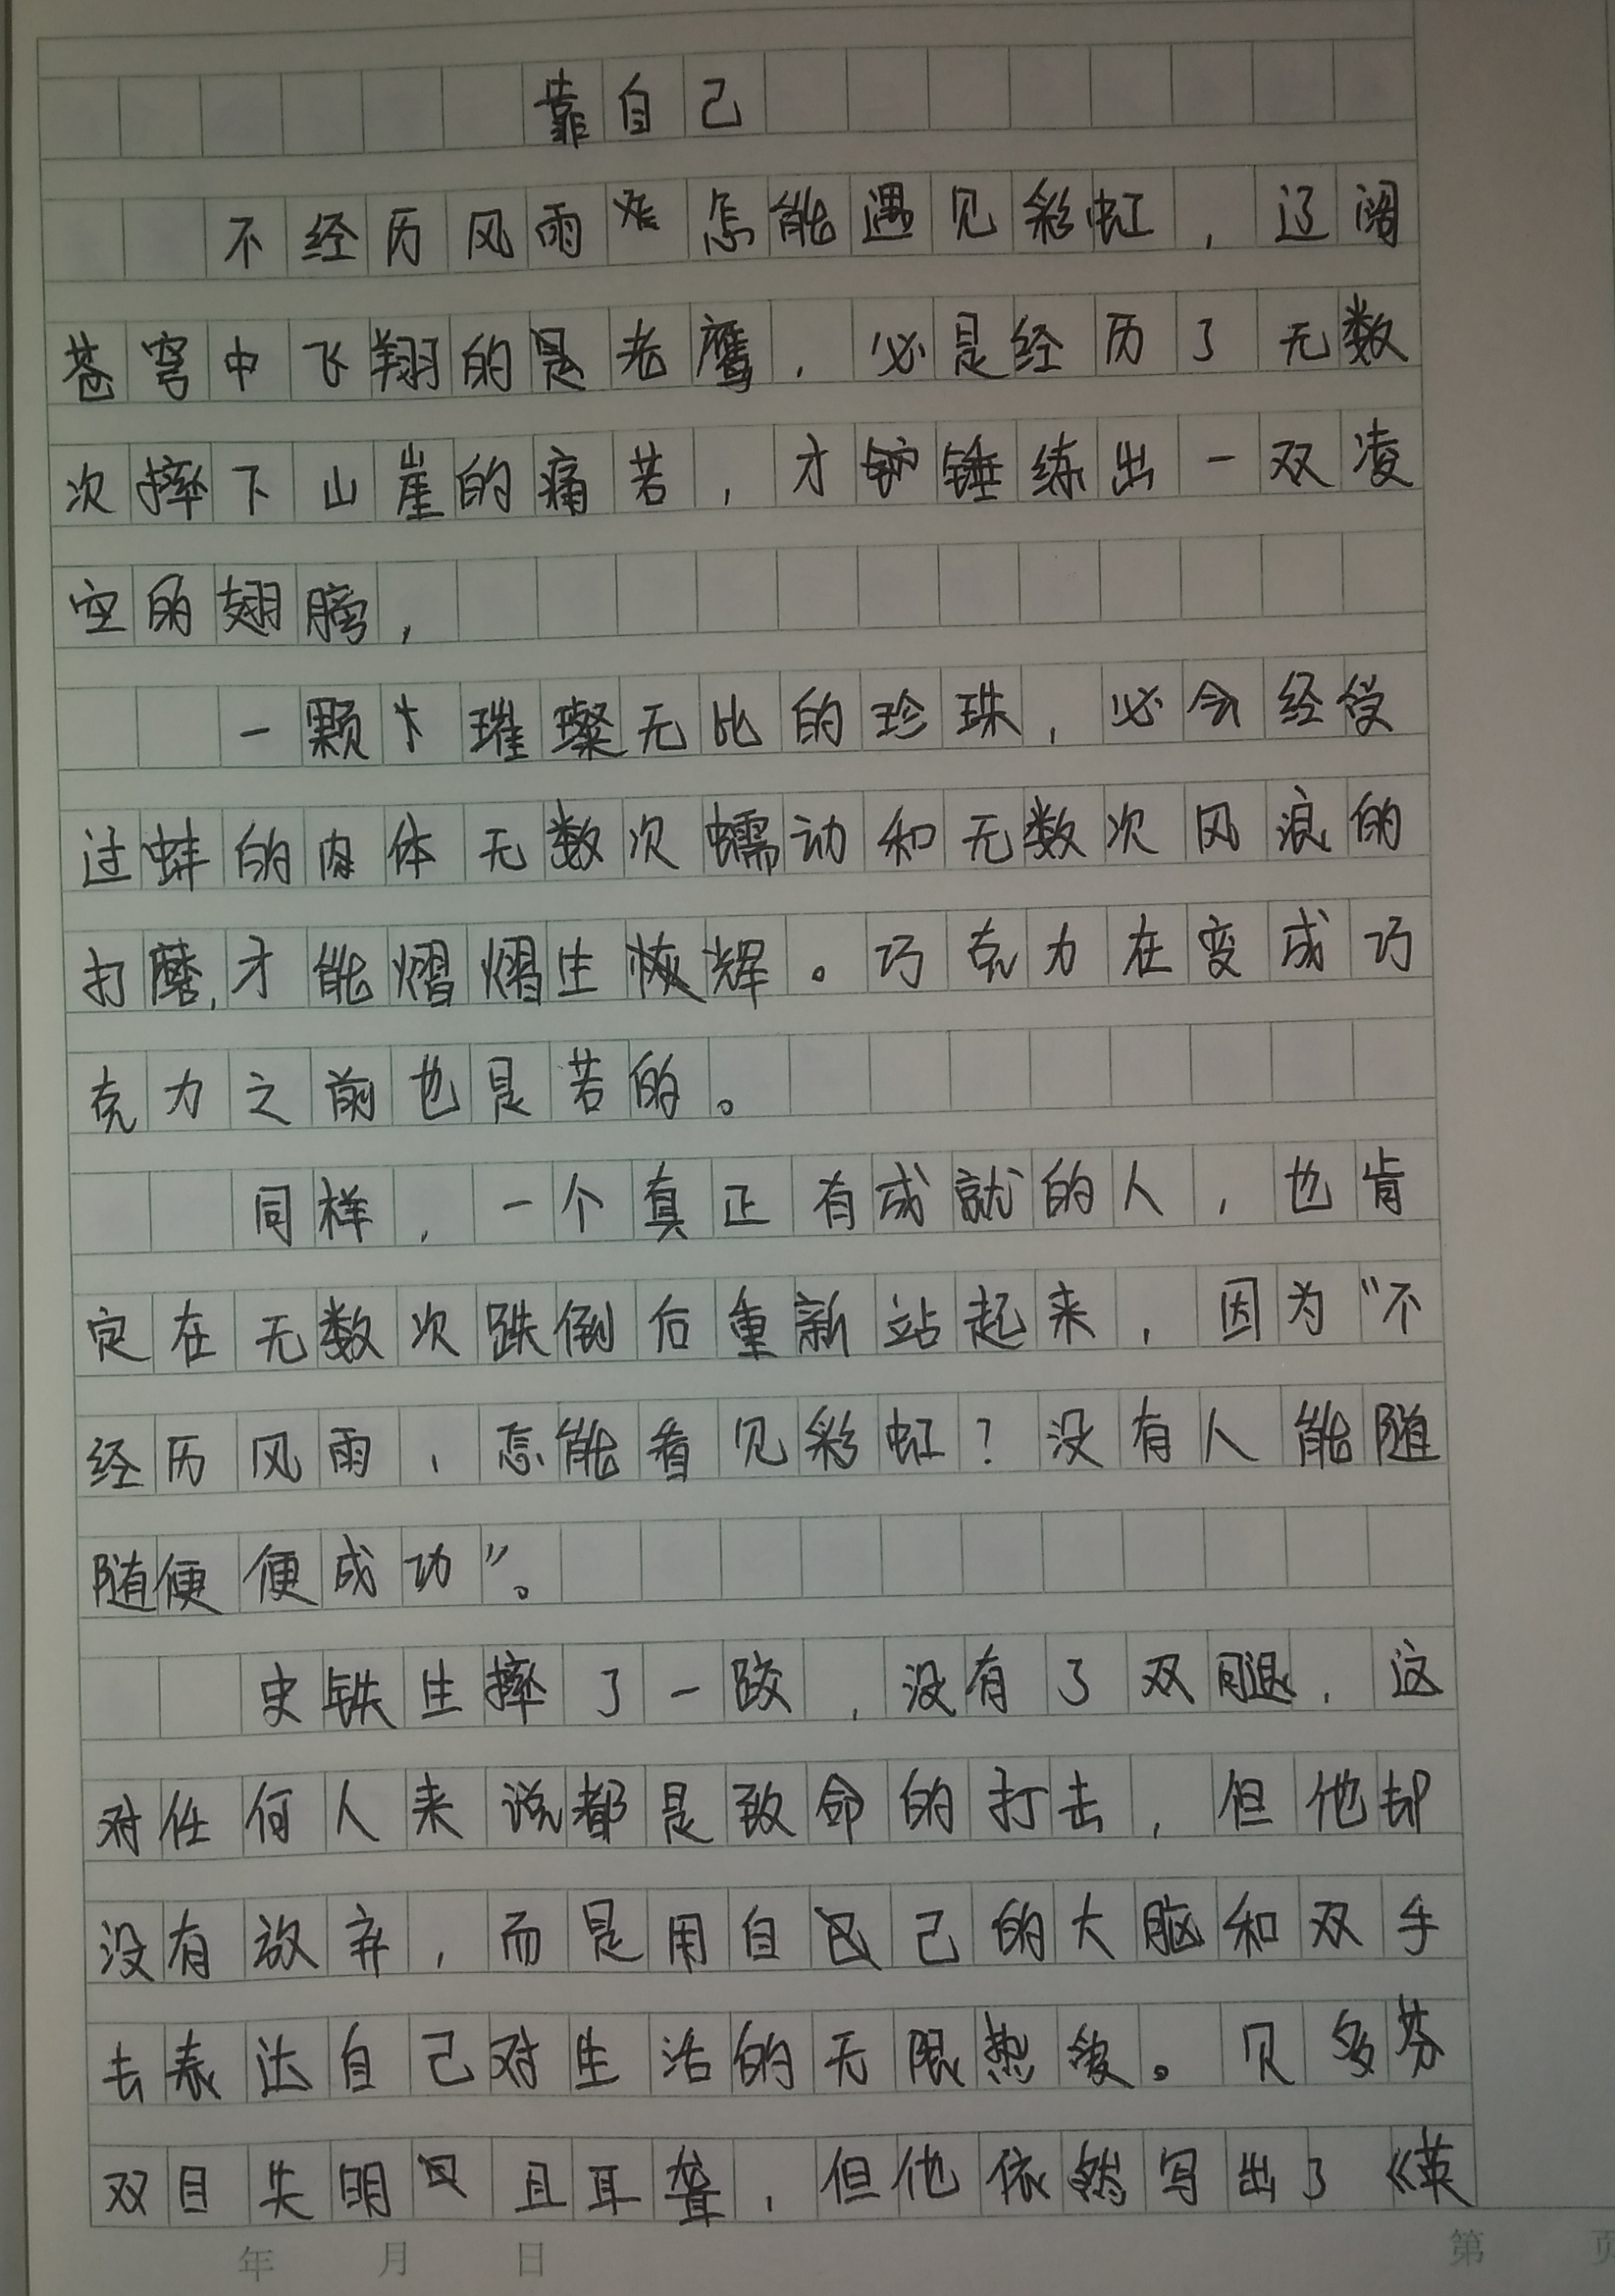 靠自己
不经历风雨怎能遇见彩虹，辽阔
苍穹中飞翔的是老鹰，必是经历了无数
次摔下山崖的痛苦，才锤练出一双凌
空的翅膀，
一颗璀璨无比的珍珠，必会经受
过蚌的肉体无数次蠕动和无数次风浪的
打磨，才能熠熠生辉。巧克力在变成巧
克力之前也是苦的。
同样，一个真正有成就的人，也肯
定在无数次跌倒后重新站起来，因为“不
经历风雨，怎能看见彩虹？没有人能随
随便便成功”。
史铁生摔了一跤，没有了双腿，这
对任何人来说都是致命的打击，但他却
没有放弃，而是用自己的大脑和双手
去表达自己对生活的无限热爱。贝多芬
双目失明且耳聋，但他依然写出了《英
年 月 日
第 页